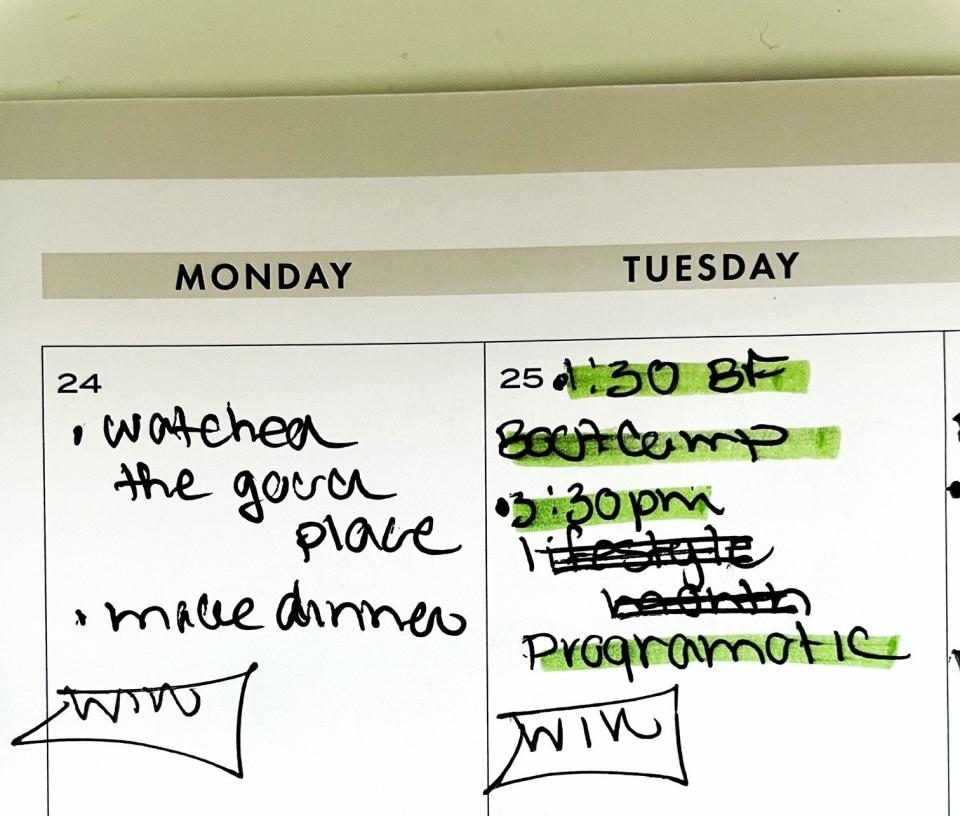 MONDAY
TUESDAY
24
• watched
the good
place
• made dinner
WIN
25 • 1:30 BF
Bootcamp
• 3:30pm
lifestyle
health
Programatic
WIN